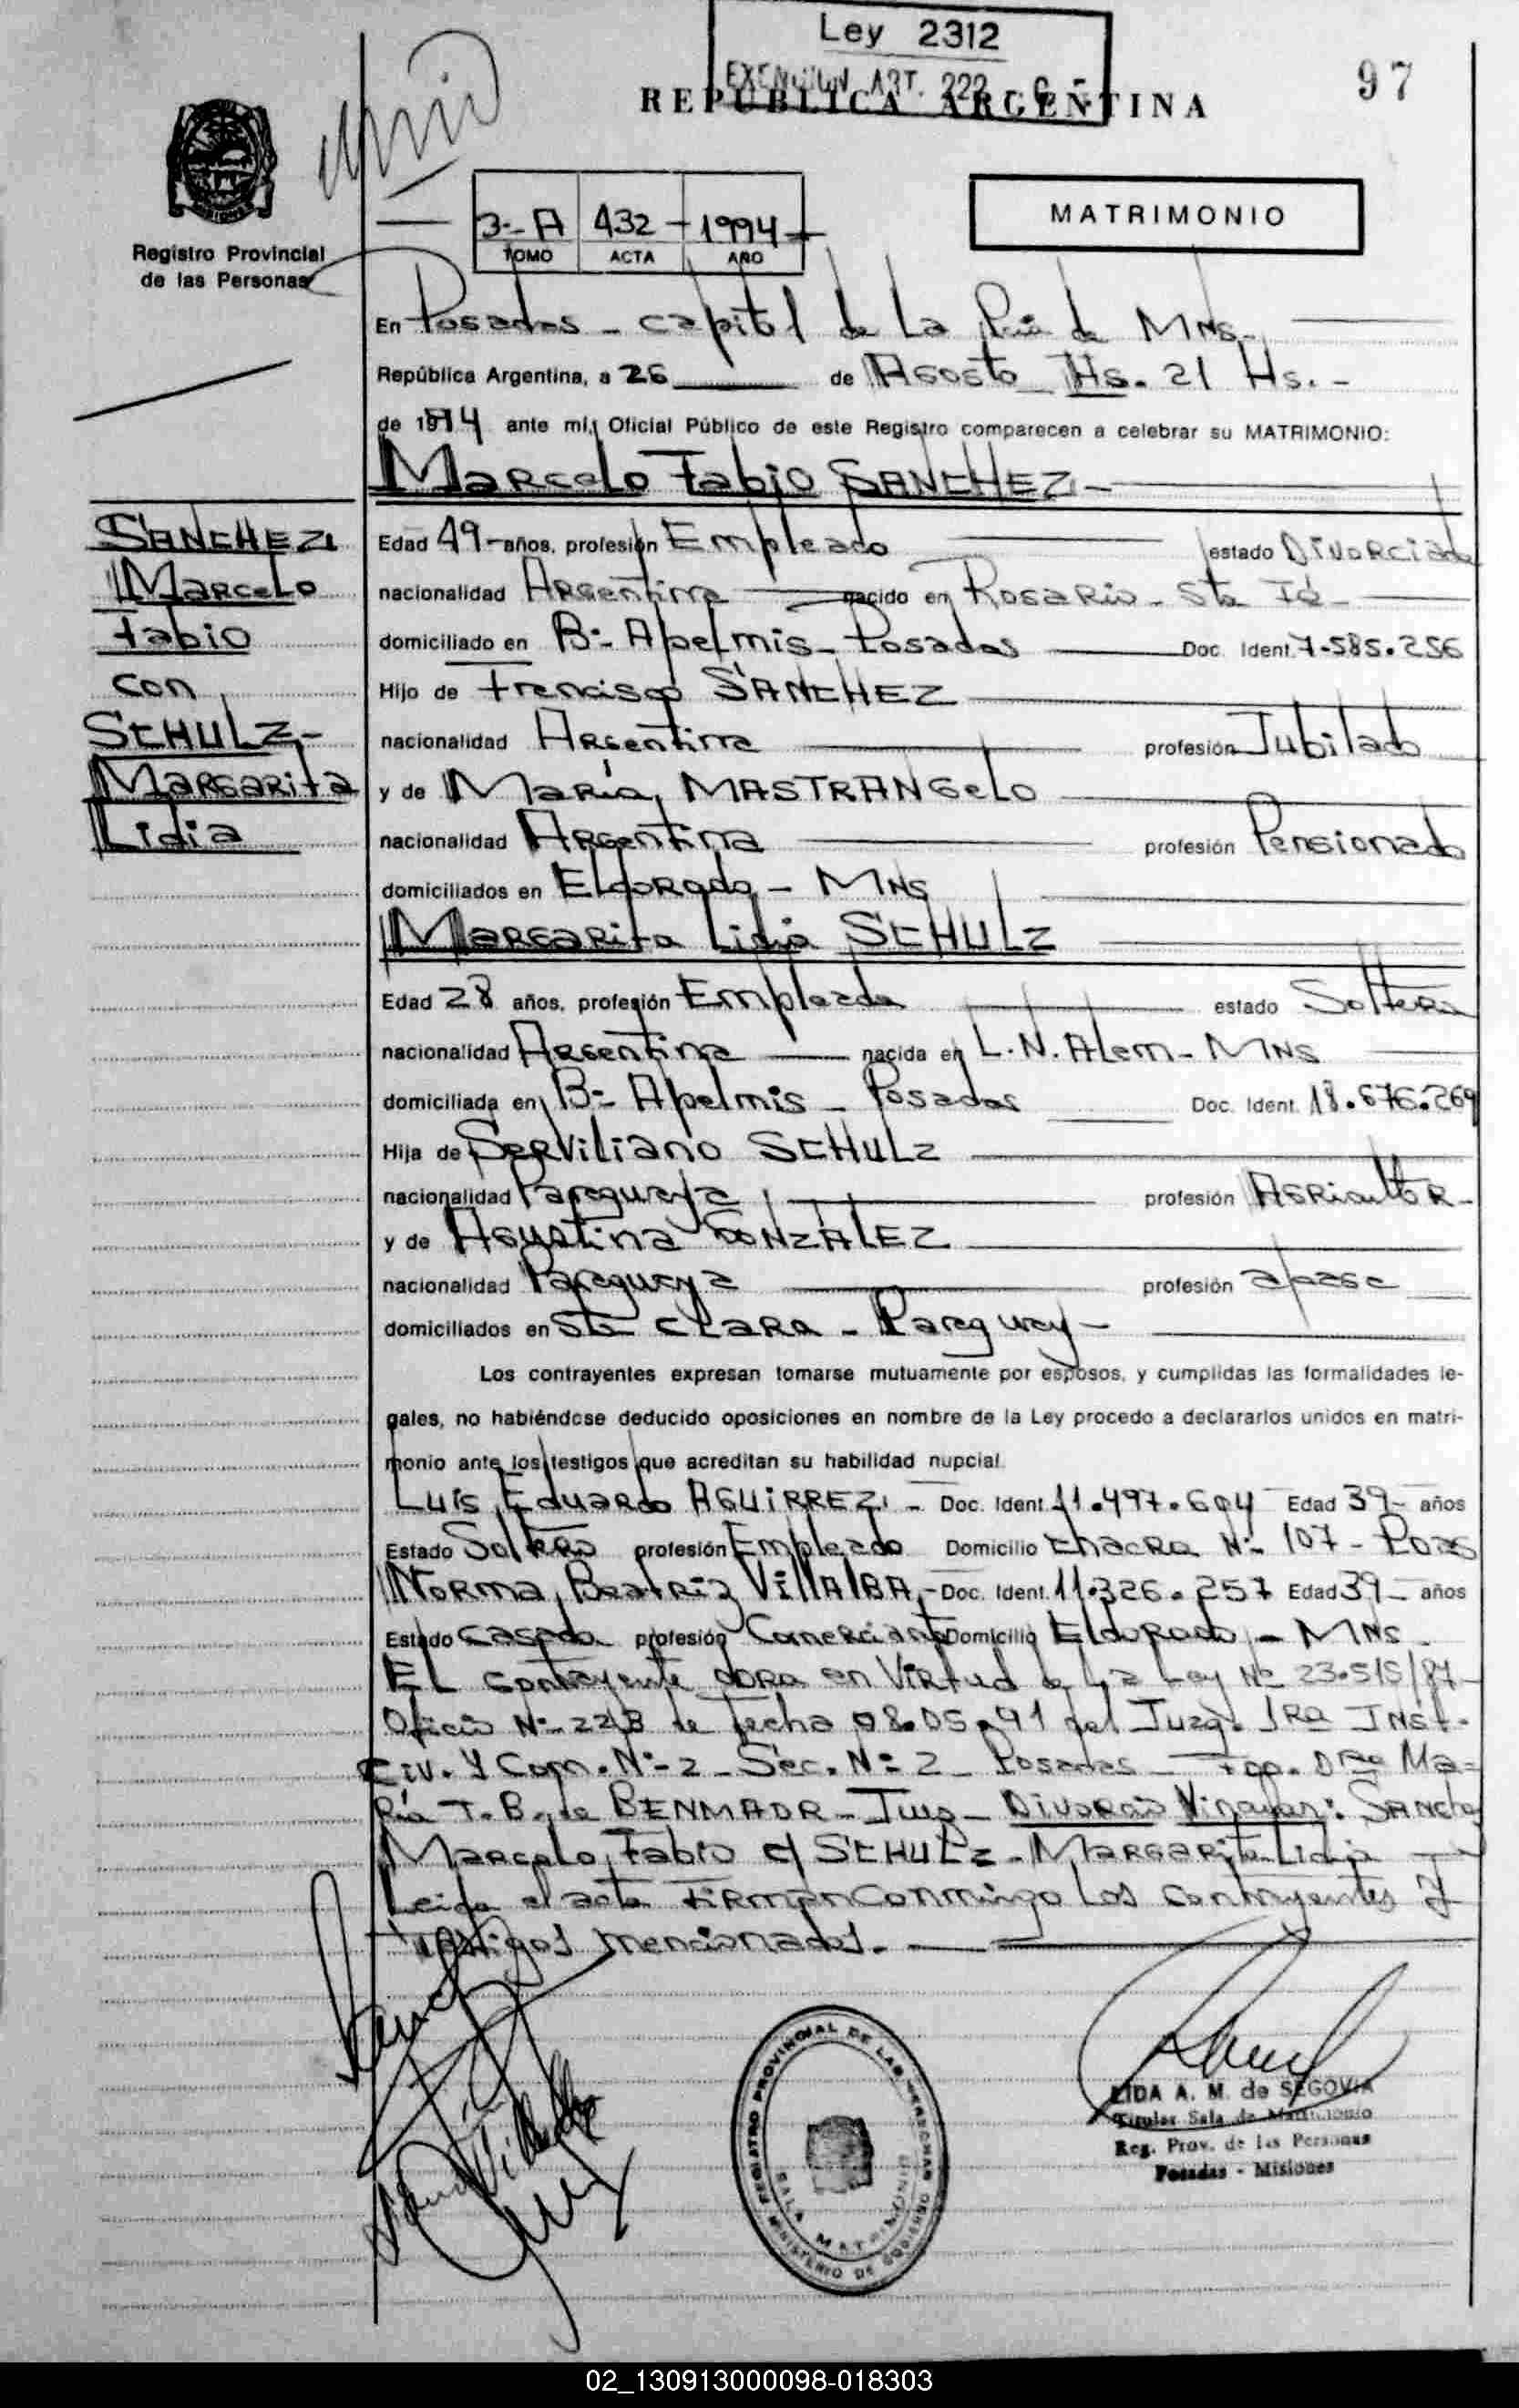 Ley 2312
EXENCION ART. 222
REPUBLICA ARGENTINA
97
Registro Provincial
de las Personas
3-A 432-1994
TOMO ACTA AÑO
MATRIMONIO
En Posadas - capital de La Pcia de Mns.
República Argentina, a 26 de Agosto Hs. 21 Hs.-
de 1994 ante mí, Oficial Público de este Registro comparecen a celebrar su MATRIMONIO:
Marcelo Fabio SANCHEZ-
SANCHEZ
Marcelo
Fabio
con
SCHULZ-
MARGARITA
Lidia
Edad 49-años, profesión Empleado estado Divorciado
nacionalidad Argentina nacido en Rosario - Sta Fé-
domiciliado en B:- A Apelmis- Posadas Doc. Ident. 7-585.256
Hijo de Francisco SANCHEZ
nacionalidad Argentina profesión Jubilado
y de María MASTRANGELO
nacionalidad Argentina profesión Pensionada
domiciliados en Eldorado - MNS
Margarita Lidia SCHULZ
Edad 28 años, profesión Empleada estado Soltera
nacionalidad Argentina nacida en L.N. Alem - MNS
domiciliada en B:- Apelmis - Posadas Doc. Ident. 18.676.269
Hija de Serviliano SCHULZ
nacionalidad Paraguaya profesión Agricultor-
y de Agustina GONZALEZ
nacionalidad Paraguaya profesión
domiciliados en Sta CLARA - Paraguay-
Los contrayentes expresan tomarse mutuamente por esposos, y cumplidas las formalidades le-
gales, no habiéndose deducido oposiciones en nombre de la Ley procedo a declararlos unidos en matri-
monio ante los testigos que acreditan su habilidad nupcial
Luis Eduardo AGUIRREZ - Doc. Ident. 11.497.604 Edad 39- años
Estado Soltero profesión Empleado Domicilio Chacra N:- 107 - Pdas
Norma Beatriz VillALBA - Doc. Ident. 11.326.257 Edad 39- años
Estado Casada profesión Comerciante Domicilio Eldorado - MNS
El contrayente obra en Virtud de La Ley Nº 23.515/87-
Oficio N:- 223 de fecha 08.05.91 del Juzg. 1Ra Inst.
Civ. y Com. N:-2 - Sec. N:2 - Posadas - Fdo. Dra Ma-
ría T. B. de BENMAOR - Juez - Divorcio Vincular: Sanchez
Marcelo Fabio c/ SCHULZ - MARGARITA Lidia
Leida el acta firman conmigo Los contrayentes y
testigos mencionados.-
REGISTRO PROVINCIAL DE LAS PERSONAS
MINISTERIO DE GOBIERNO
SALA MATRIMONIO
LIDA A. M. de SEGOVIA
Titular Sala de Matrimonio
Reg. Prov. de las Personas
Posadas - Misiones
02_130913000098-018303